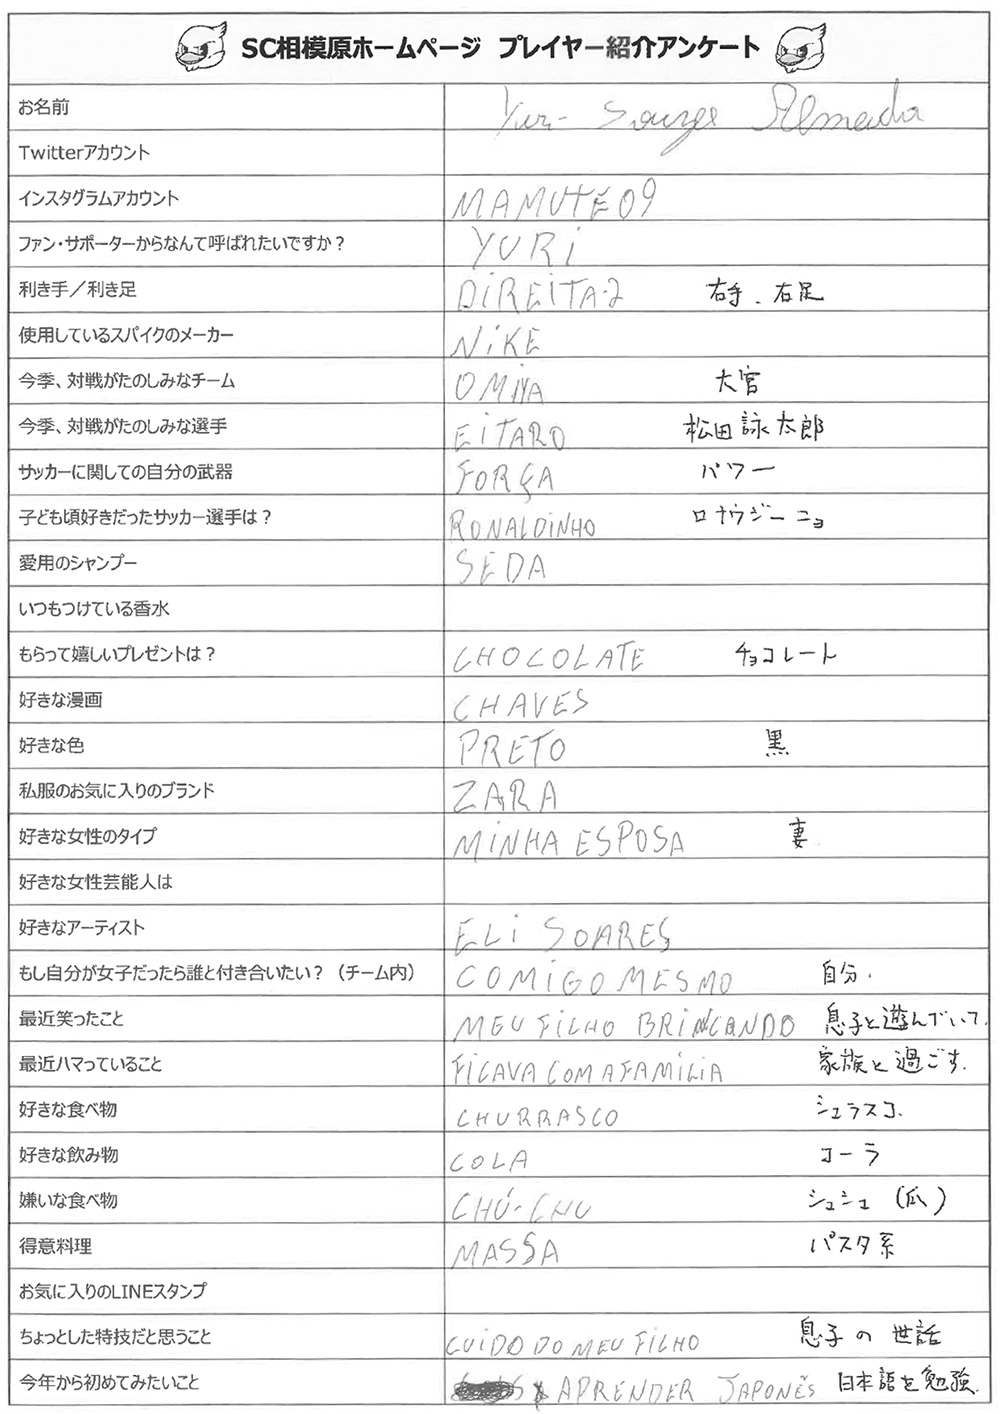 SC相模原ホームページ プレイヤー紹介アンケート
お名前 Yuri Souza Almeida
Twitterアカウント
インスタグラムアカウント MAMUTE09
ファン・サポーターからなんて呼ばれたいですか？ YURI
利き手／利き足 DIREITA-2 右手．右足
使用しているスパイクのメーカー NIKE
今季、対戦がたのしみなチーム OMIYA 大宮
今季、対戦がたのしみな選手 EITARO 松田詠太郎
サッカーに関しての自分の武器 FORÇA パワー
子ども頃好きだったサッカー選手は？ RONALDINHO ロナウジーニョ
愛用のシャンプー SEDA
いつもつけている香水
もらって嬉しいプレゼントは？ CHOCOLATE チョコレート
好きな漫画 CHAVES
好きな色 PRETO 黒
私服のお気に入りのブランド ZARA
好きな女性のタイプ MINHA ESPOSA 妻
好きな女性芸能人は
好きなアーティスト ELI SOARES
もし自分が女子だったら誰と付き合いたい？（チーム内） COMIGO MESMO 自分．
最近笑ったこと MEU FILHO BRINCANDO 息子と遊んでいて．
最近ハマっていること FICAVA COM A FAMÍLIA 家族と過ごす．
好きな食べ物 CHURRASCO シュラスコ．
好きな飲み物 COLA コーラ
嫌いな食べ物 CHÚ-CHU シュシュ（瓜）
得意料理 MASSA パスタ系
お気に入りのLINEスタンプ
ちょっとした特技だと思うこと CUIDO DO MEU FILHO 息子の世話
今年から初めてみたいこと APRENDER JAPONÊS 日本語を勉強．